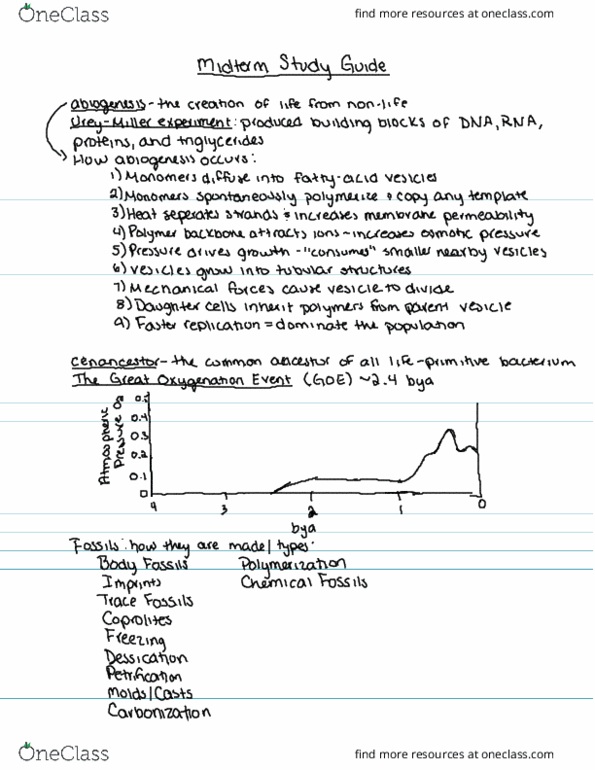 OneClass find more resources at oneclass.com
Midterm Study Guide
abiogenesis - the creation of life from non-life
Urey-Miller experiment: produced building blocks of DNA, RNA,
proteins, and triglycerides
How abiogenesis occurs:
1) Monomers diffuse into fatty-acid vesicles
2) Monomers spontaneously polymerize & copy any template
3) Heat seperates strands & increases membrane permeability
4) Polymer backbone attracts ions - increases osmotic pressure
5) Pressure drives growth - "consumes" smaller nearby vesicles
6) Vesicles grow into tubular structures
7) Mechanical forces cause vesicle to divide
8) Daughter cells inherit polymers from parent vesicle
9) Faster replication = dominate the population
cenancestor - the common ancestor of all life - primitive bacterium
The Great Oxygenation Event (GOE) ~2.4 bya
Atmospheric
Pressure O2
0.5
0.4
0.3
0.2
0.1
0
4 3 2 1 0
bya
Fossils: how they are made/types:
Body Fossils Polymerization
Imprints Chemical Fossils
Trace Fossils
Coprolites
Freezing
Dessication
Petrification
Molds/Casts
Carbonization
OneClass find more resources at oneclass.com